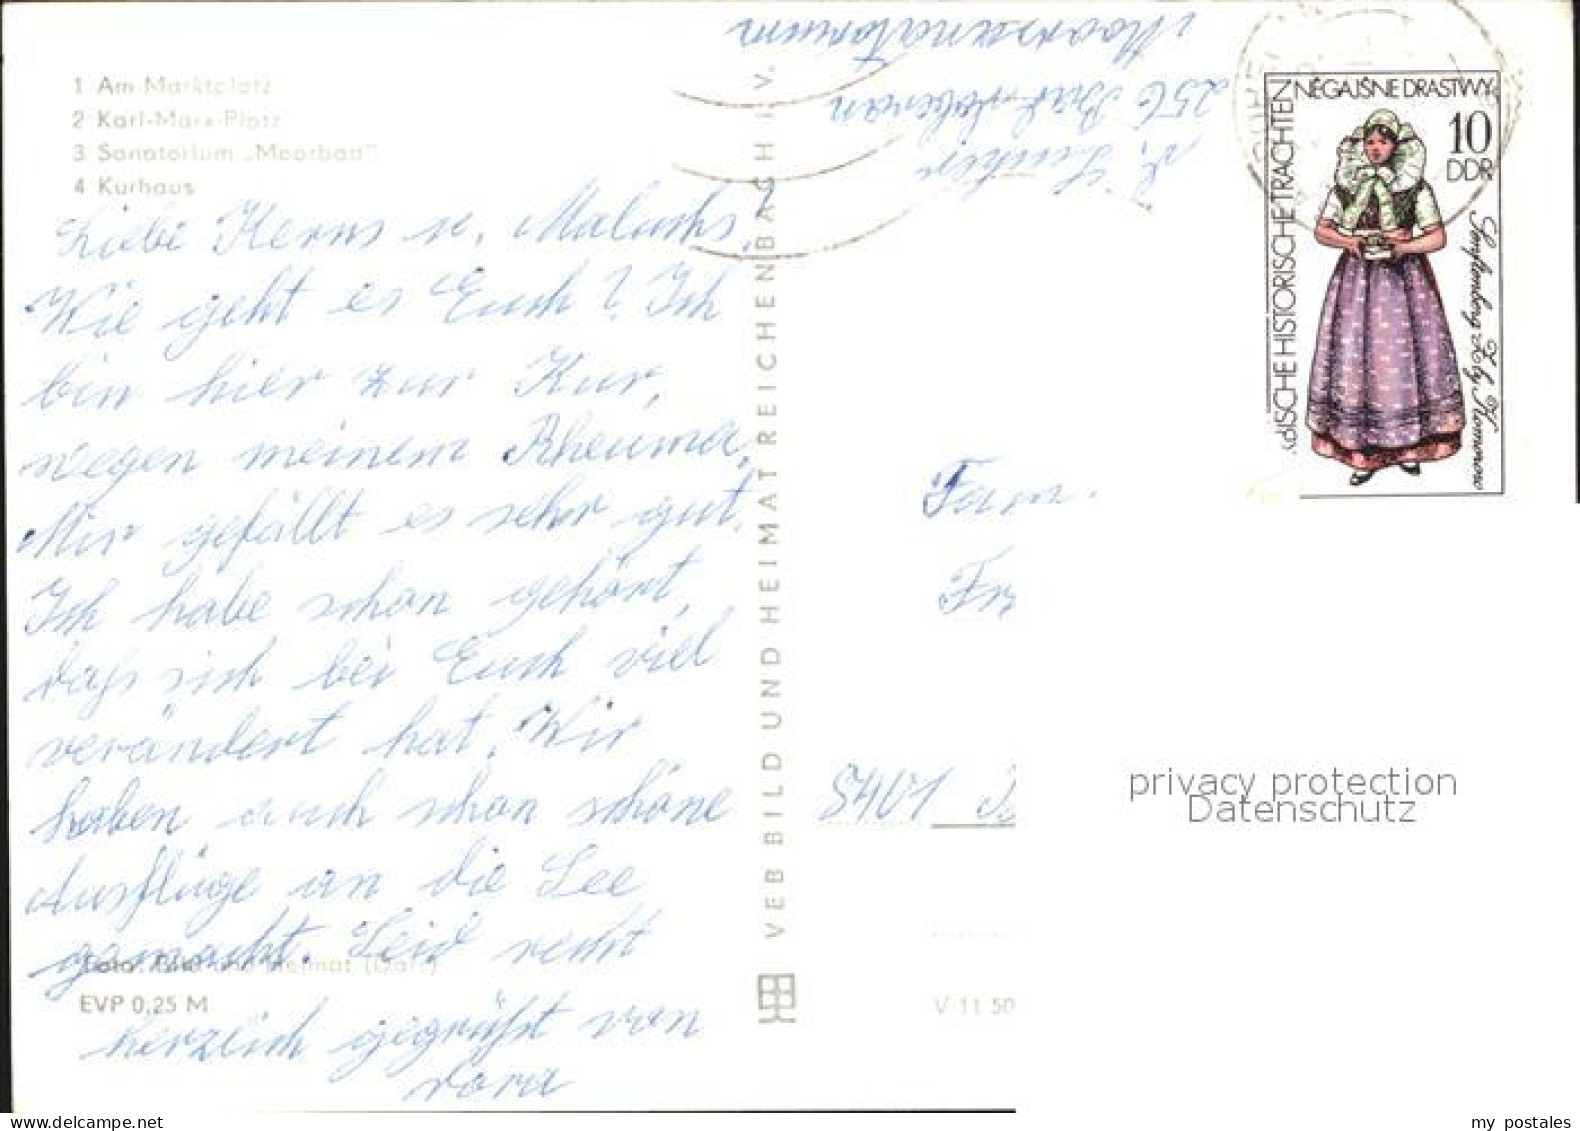 1 Am Marktplatz
2 Karl-Marx-Platz
3 Sanatorium „Moorbad"
4 Kurhaus
Liebe Kerns u. Maluchs,
Wie geht es Euch? Ich
bin hier zur Kur,
wegen meinem Rheuma,
Mir gefällt es sehr gut.
Ich habe schon gehört,
daß sich bei Euch viel
verändert hat. Wir
haben auch schon schöne
Ausflüge an die See
gemacht. Seid recht
herzlich gegrüßt von
Dora
Foto: Bild und Heimat
EVP 0,25 M
VEB BILD UND HEIMAT REICHENBACH I. V.
Moorsanatorium
256 Bad Doberan
NĚGAJŠNE DRASTWY
HISTORISCHE TRACHTEN
10
DDR
Senftenberg Zły Komorow
Fam.
Fr
5401
V 11 50
privacy protection
Datenschutz
my postales